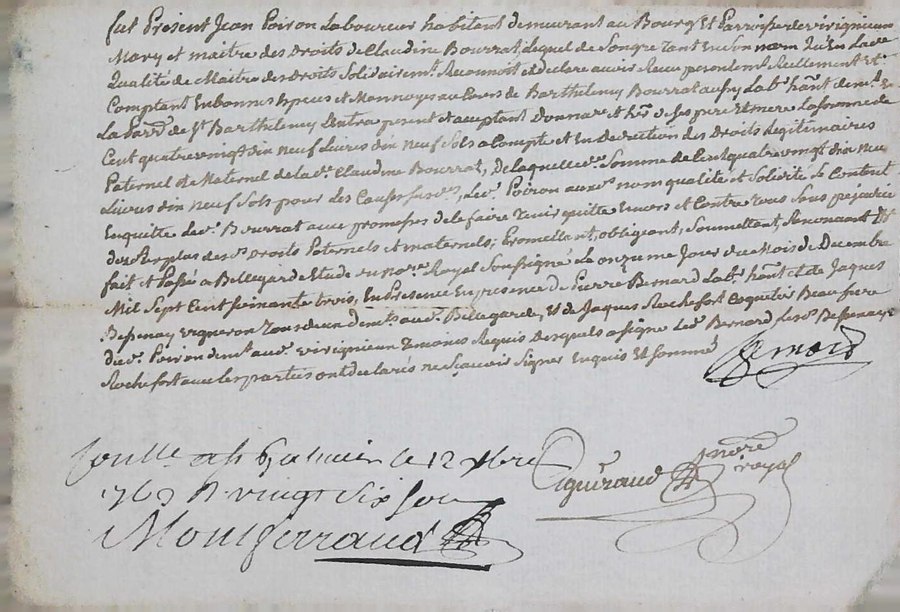 fut Présent Jean Poiron Laboureur habitant demeurant au Bourg Et Parroisse de virignieu
Mary et maitre des Droits de Claudine Bourrat lequel de Son gre tant En Son nom Qu'En Lade
Qualité de Maitre des Droits Solidairemt. Reconnoit et declare avoir Receu presentemt. Reellement Et
Comptant En bonnes Especes et Monnoye au Cours de Barthelemy Bourrat aussy Labr. hant. demt. En
La parsse. de St. Barthelemy Lentra present et acceptant donnare. et her. de Ses pere Et mere La Somme de
Cent quatrevingt dix neuf Livres dix neuf Sols a Compte et En Deduction des Droits Legitimaires
Paternel et Maternel de lade. Claudine Bourrat, De laquelle de. Somme de Cent quatre vingt dix neuf
Livres dix neuf Sols pour Les Causes Sus des. Led. Poiron auxds. nom qualité et Solidité Se Contente
En quitte Led. Bourrat avec promesses de le faire Tenir quitte Envers et Contre tous Sans préjudice
du Surplus desds. droits Paternels et maternels; Promettant, obligeant, Soumettant, Renonceant &c
fait et Passé a Bellegarde Etude du nore. Royal Soussigné Le onzieme Jour du Mois de Decembre
Mil Sept Cent Soixante trois, En Presence En presence de Pierre Bernard Labr. hant. et de Jaques
Bessenay vigneron tous deux demts. aud. Bellegarde, Et de Jaques Rochefort Coquetier Beau frere
dud. Poiron demt. aud. virignieu temoins Requis Desquels a signé Led. Bernard Lesd. Bessenay Et
Rochefort avec les parties ont declarés ne Sçavoir Signer Enquis Et Sommés
Bernard
Conlle. a St Galmier le 12 xbre
1763 R vingt Six Sous
Montferraud
Piguéraud nore. royal